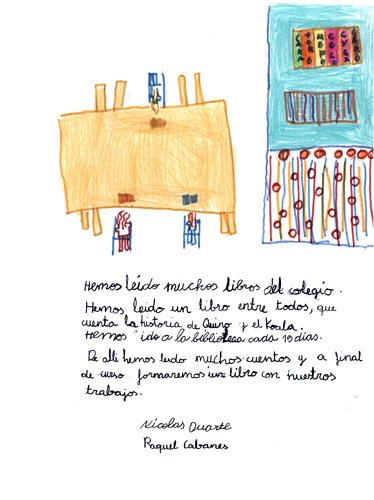 Hemos leído muchos libros del colegio.
Hemos leido un libro entre todos, que
cuenta la historia de Quino y el Koala.
Hemos ido a la biblioteca cada 15 dias.
De allí hemos leido muchos cuentos y a final
de curso formaremos un libro con nuestros
trabajos.
Nicolas Duarte
Raquel Cabanes